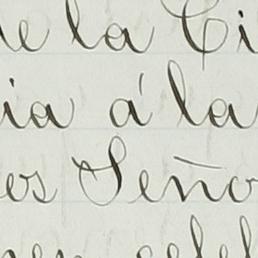 de la Ci
ia á la
es Seño